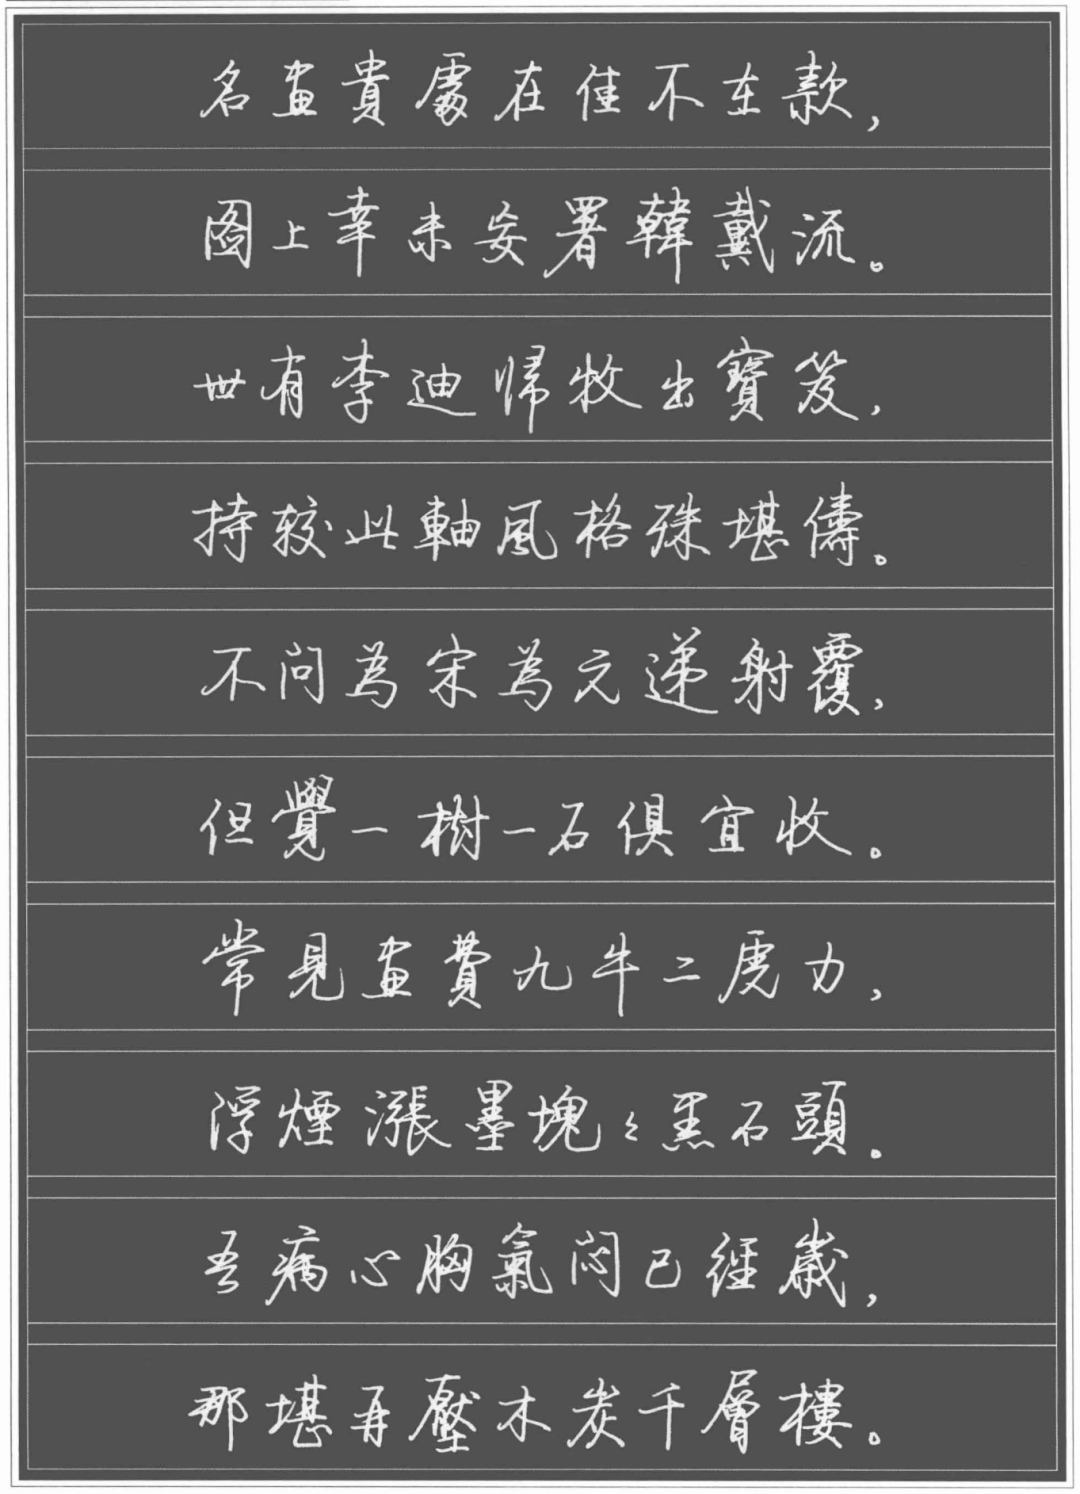 名畫貴處在佳不在款，
圖上幸未妄署韓戴流。
世有李迪帰牧出寶笈，
持較此軸風格殊堪儔。
不問為宋為元遞射覆，
但覺一樹一石俱宜收。
常見畫費九牛二虎力，
浮煙漲墨塊々黑石頭。
吾病心胸氣悶已經歲，
那堪再壓木炭千層樓。